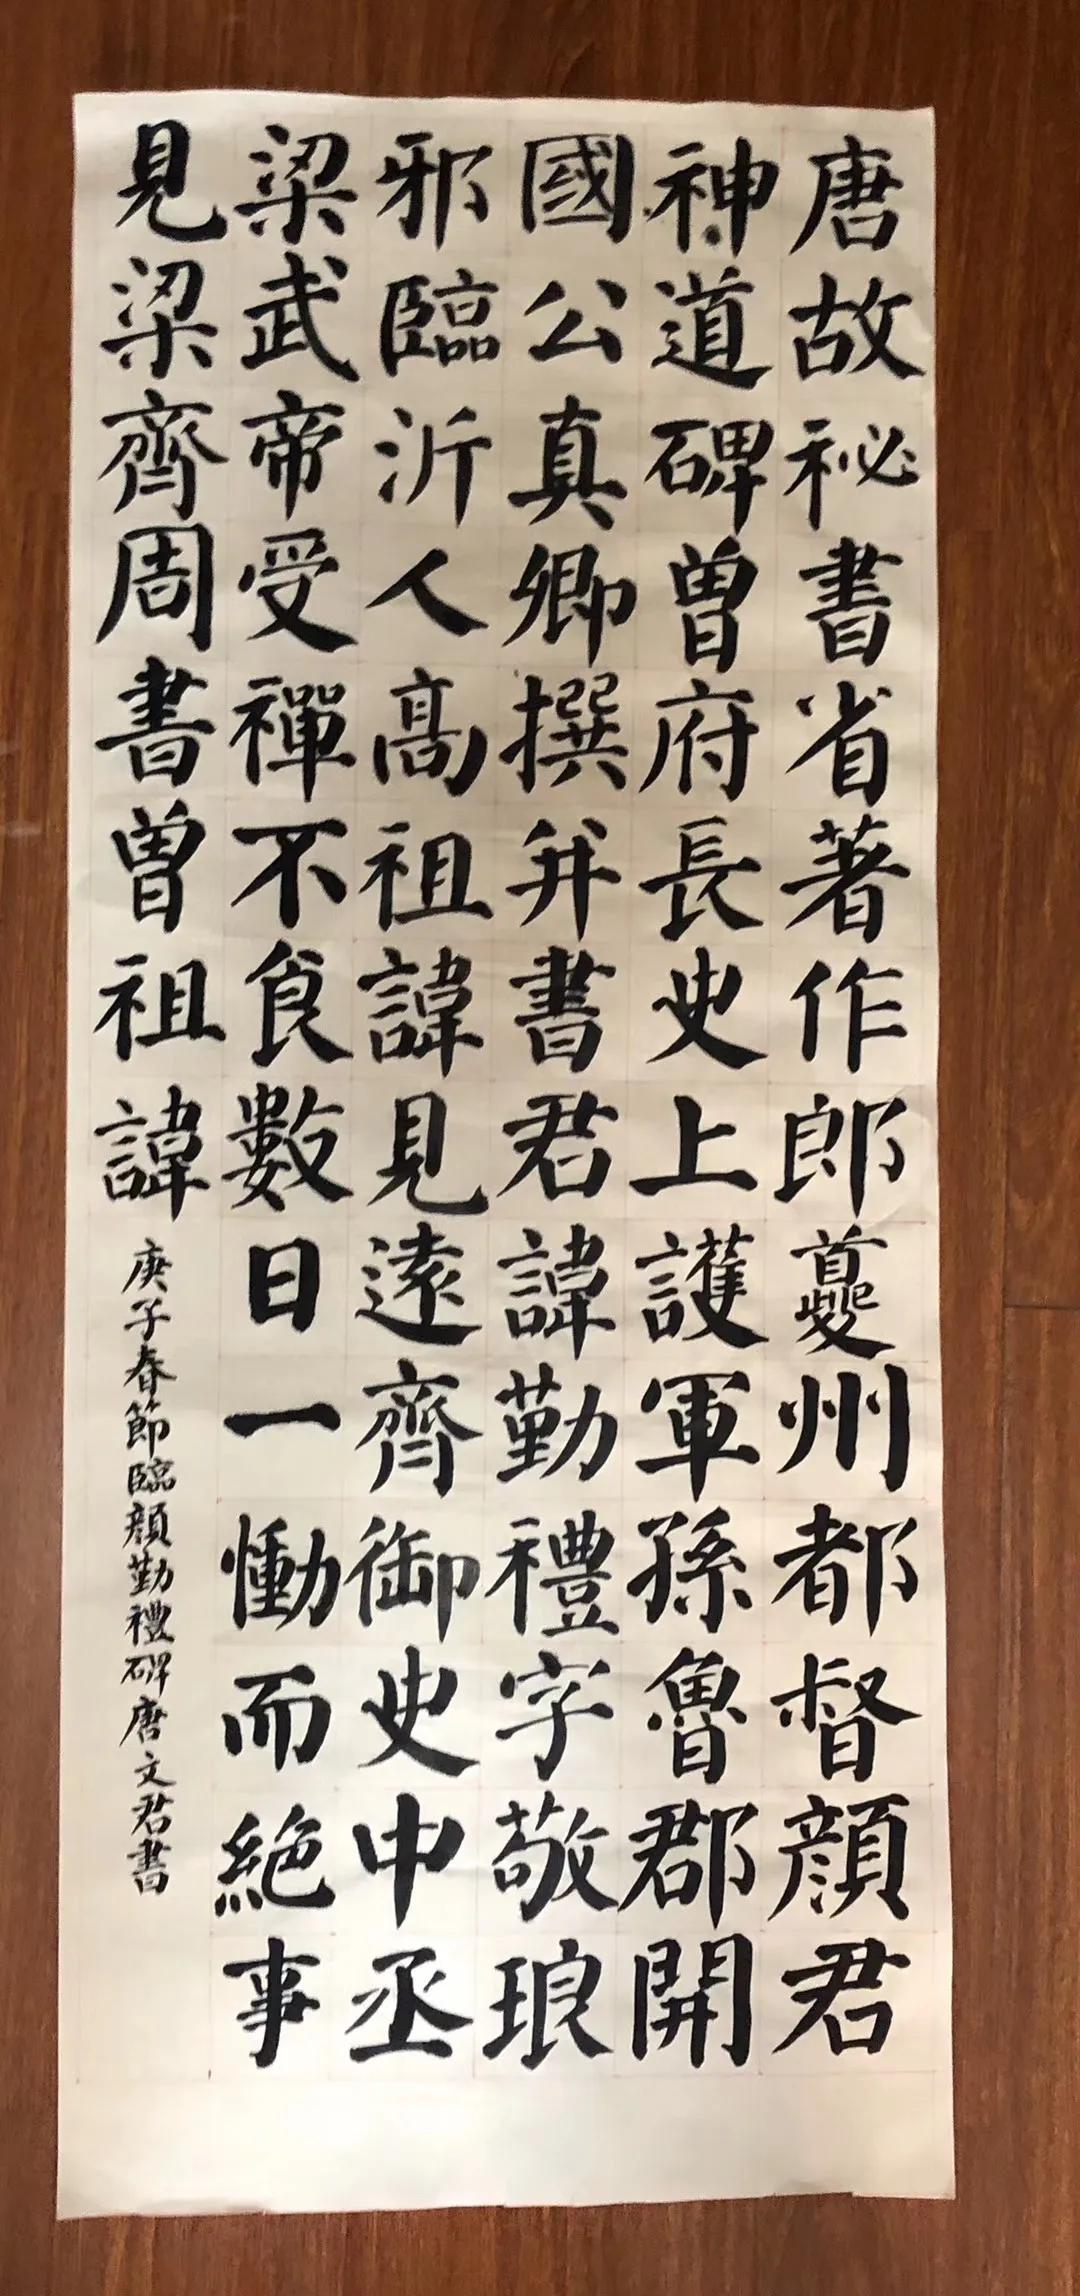 唐故祕書省著作郎夔州都督顏君
神道碑曾府長史上護軍孫魯郡開
國公真卿撰并書君諱勤禮字敬琅
邪臨沂人高祖諱見遠齊御史中丞
梁武帝受禪不食數日一慟而絕事
見梁齊周書曾祖諱
庚子春節臨顏勤禮碑唐文君書